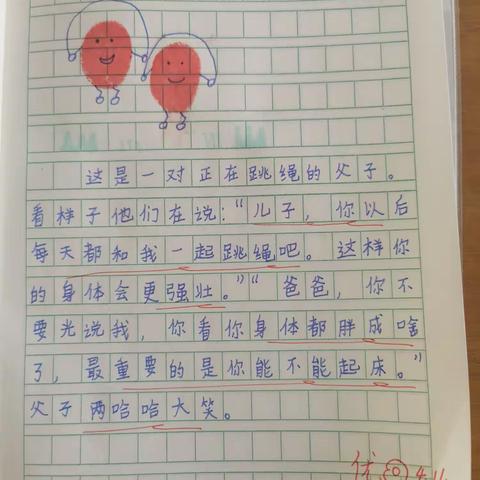 这是一对正在跳绳的父子。
看样子他们在说：“儿子，你以后
每天都和我一起跳绳吧。这样你
的身体会更强壮。”“爸爸，你不
要光说我，你看你身体都胖成啥
了，最重要的是你能不能起床。”
父子两哈哈大笑。
优